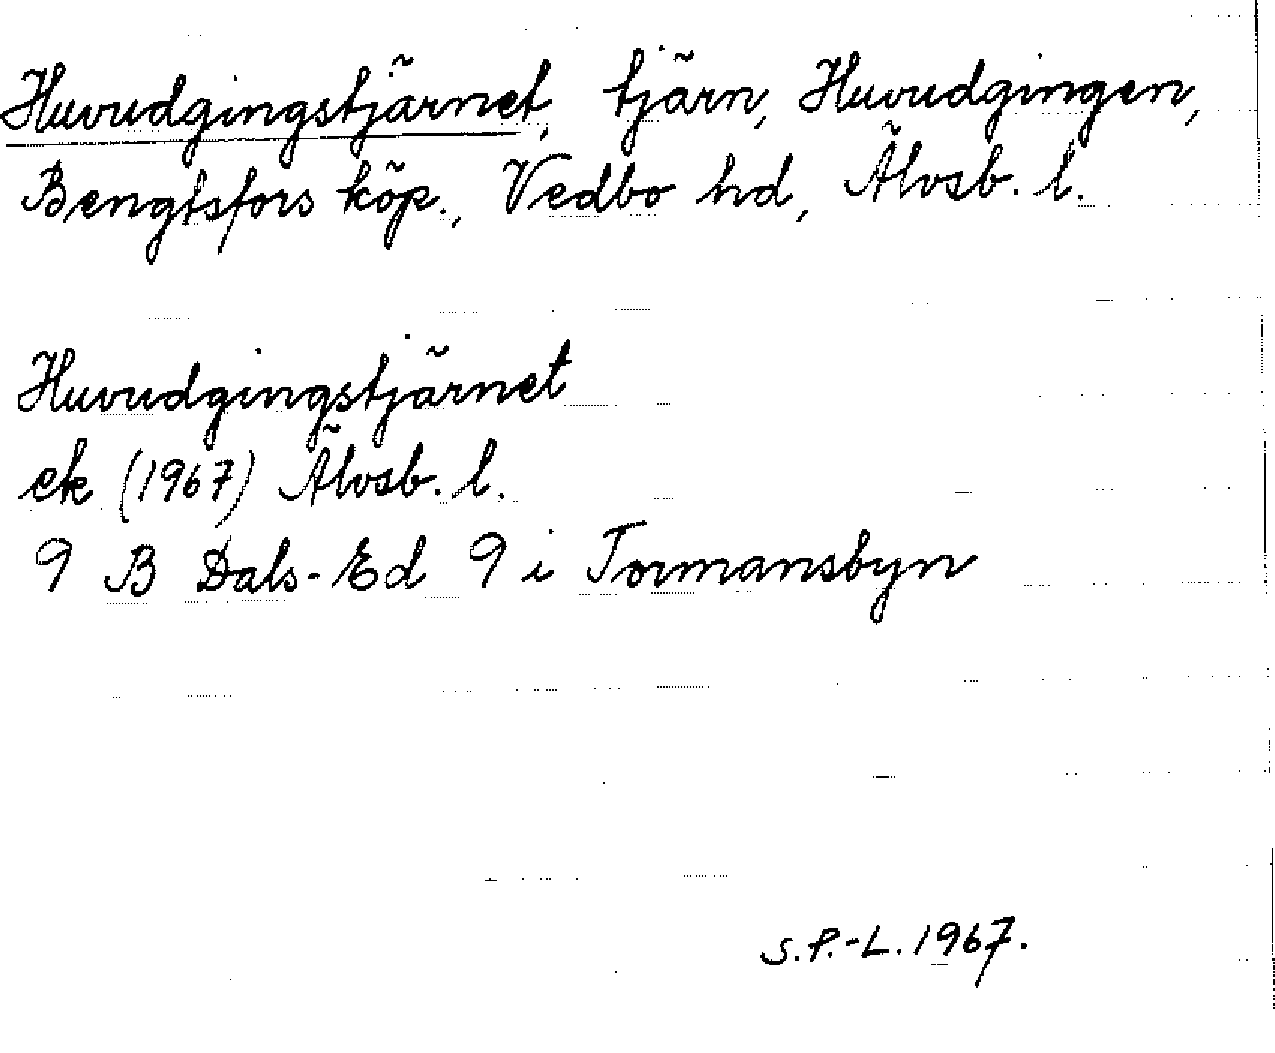 Huvudgingstjärnet, tjärn, Huvudgingen,
Bengtsfors köp., Vedbo hd, Älvsb. l.
Huvudgingstjärnet
ek (1967) Älvsb. l.
9 B Dals-Ed 9 i Tormansbyn
S.P.-L. 1967.